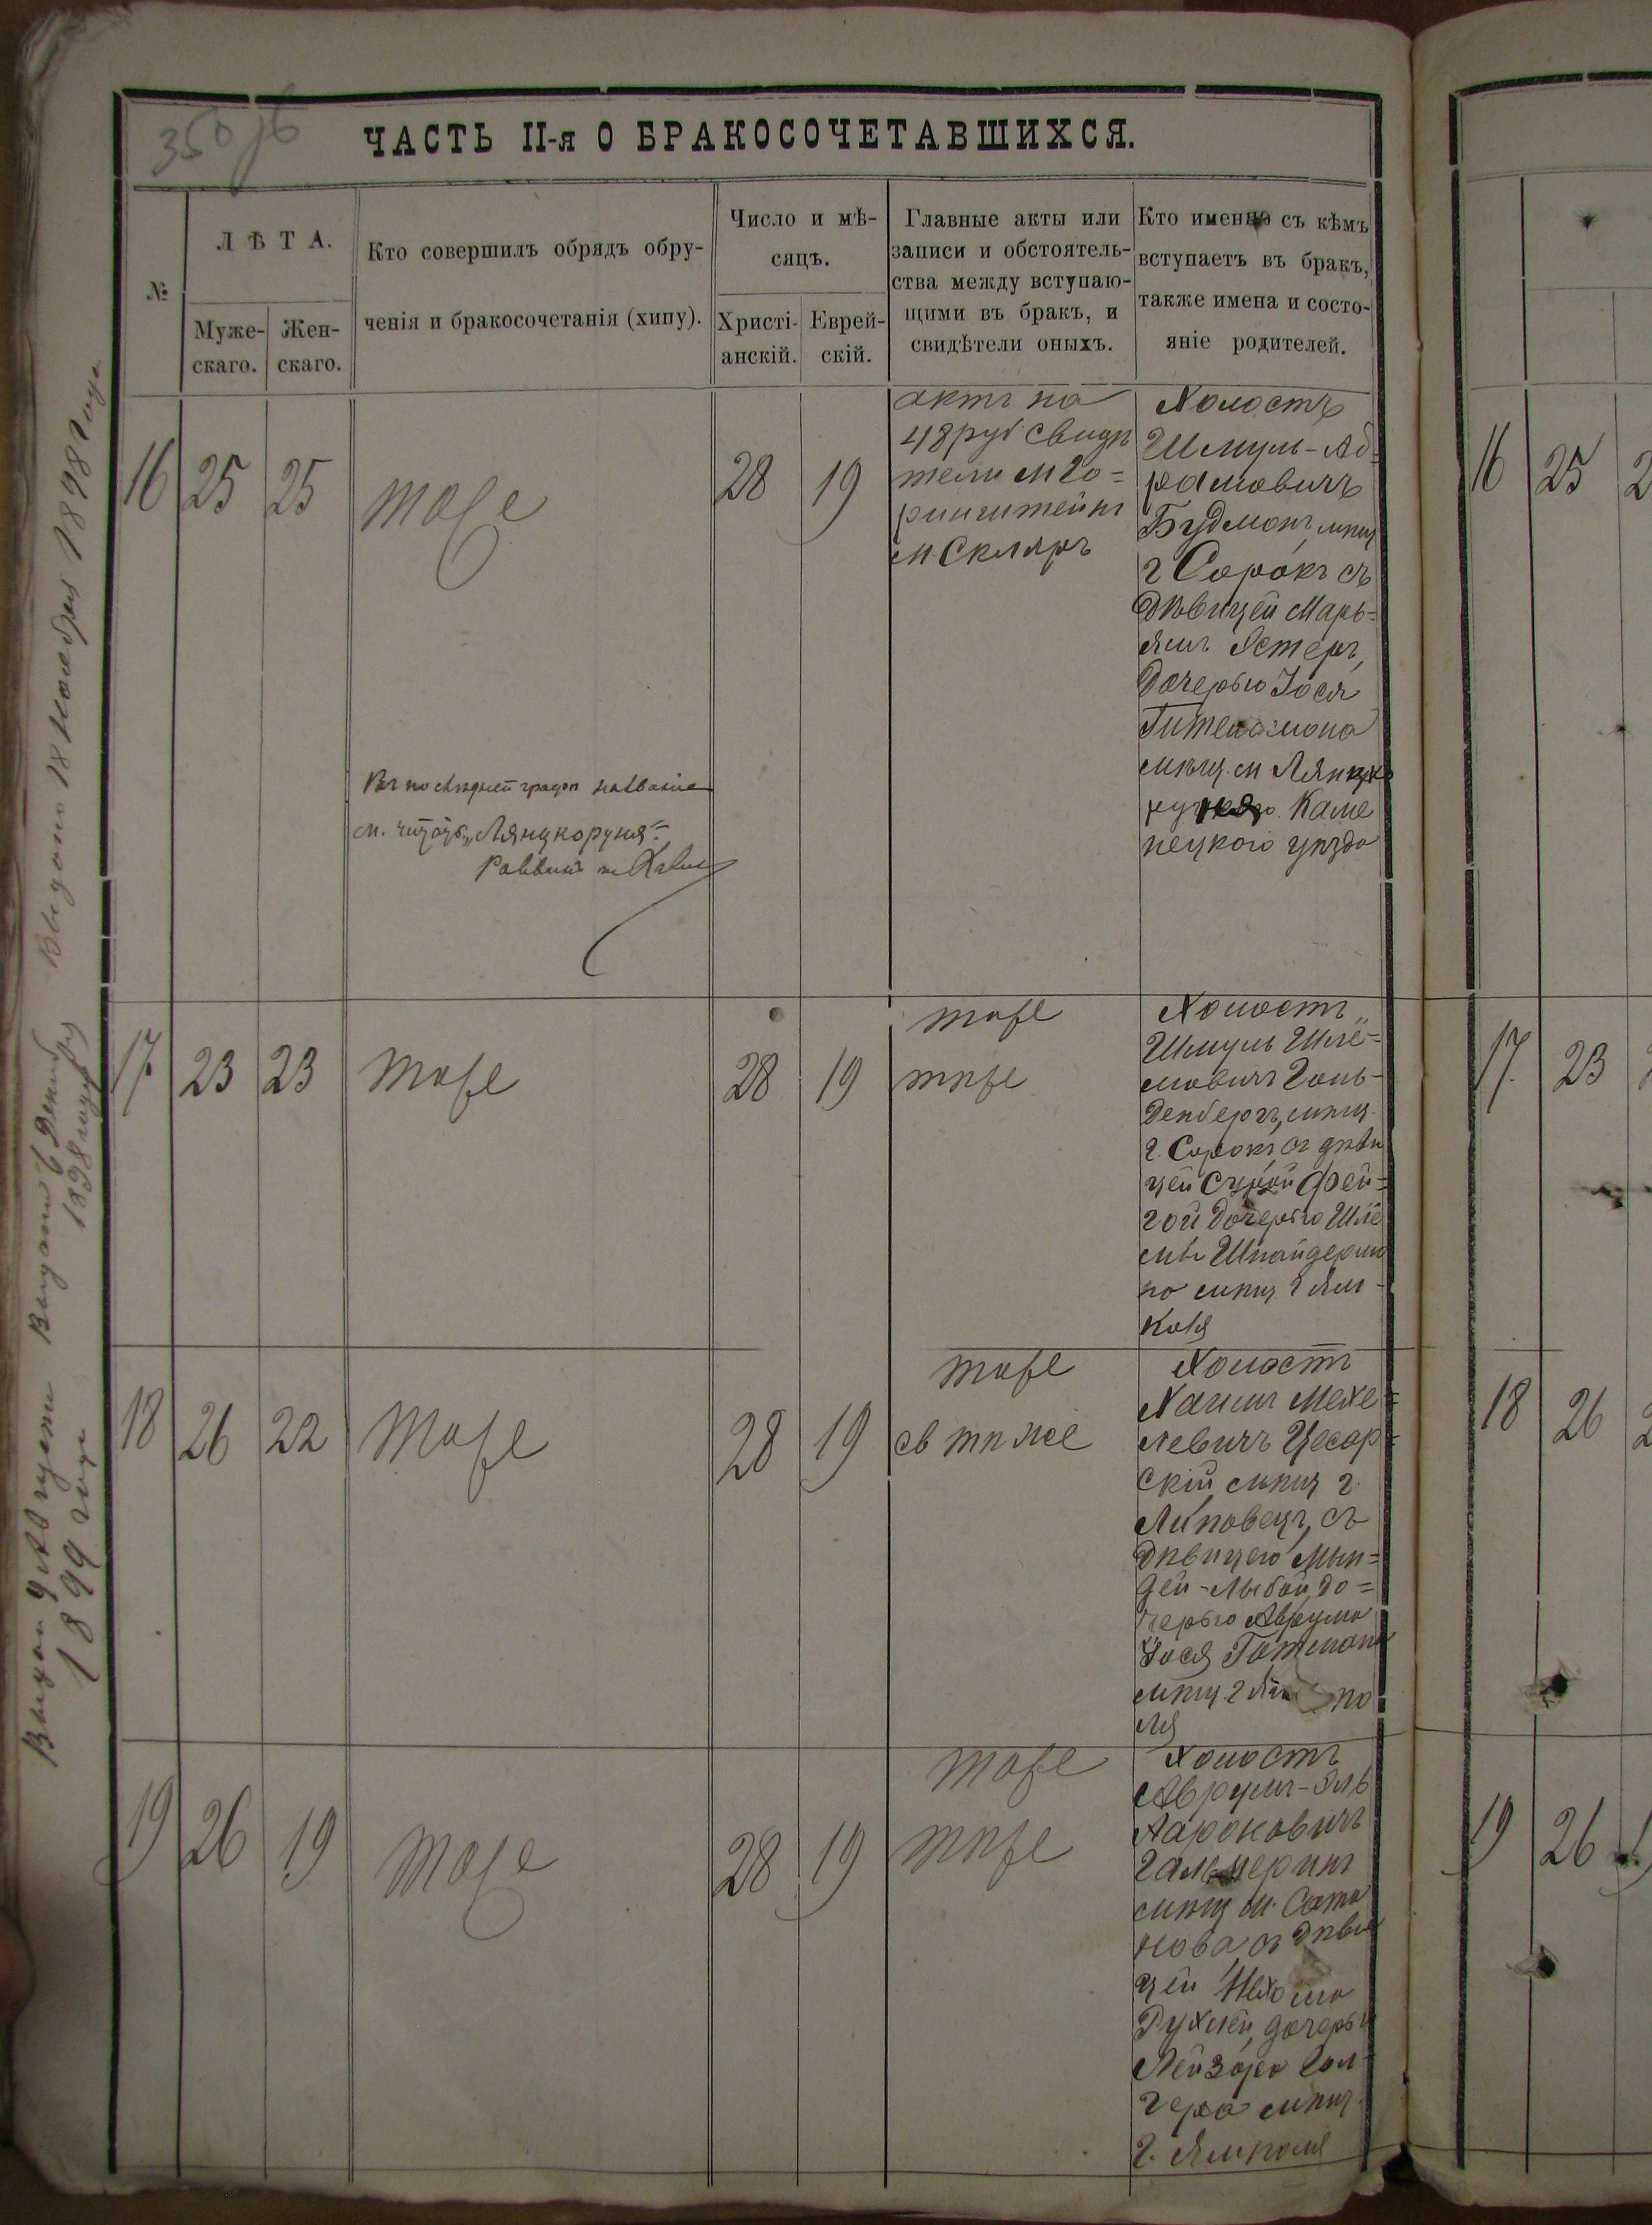 350 об
ЧАСТЬ II-я О БРАКОСОЧЕТАВШИХСЯ.
№
ЛѢТА.
Муже-
скаго.
Жен-
скаго.
Кто совершилъ обрядъ обру-
ченія и бракосочетанія (хипу).
Число и мѣ-
сяцъ.
Христі-
анскій.
Еврей-
скій.
Главные акты или
записи и обстоятель-
ства между вступаю-
щими въ бракъ, и
свидѣтели оныхъ.
Кто именно съ кѣмъ
вступаетъ въ бракъ,
также имена и состо-
яніе родителей.
16
25
25
тоже
28
19
актъ на
48 руб свидѣ
тели М Го=
ринштейнъ
М. Скляръ
Холостъ
Шмуль-Аб=
рамовичъ
Будманъ, мѣщ
г Сорокъ съ
Дѣвицей Марь=
ямъ Эстеръ,
Дочерью Іося
мѣщ. м Лянцко
Каме
нецкого уѣзда
Въ послѣдней графѣ названіе
м. читать „Лянцкоруня“.
Раввинъ
17
23
23
тоже
28
19
тоже
тѣже
Холостъ
Шмуль Шлё=
мовичъ Голь-
денбергъ, мѣщ.
г. Сорокъ, съ дѣви
цей Сурой Фей=
гой Дочерью Шлё
мы Шнайдерма
на мѣщ г Ям-
поля
18
26
22
тоже
28
19
тоже
св тѣ же
Холостъ
Хаимъ Мехе=
левичъ Цесар=
скій мѣщ г.
Липовецъ, съ
Дѣвицею Мин=
дей-Либой, до=
черью Аврума
Іося Гитмана
мѣщ. г Ям по
ля
19
26
19
тоже
28
19
тоже
тѣже
Холостъ
Аврумъ-Эль
Аароновичъ
Гальперинъ
мѣщ м. Сата
нова съ Дѣви
цей Нехома
Рухлей, дочерью
Лейзора Гол
гера мѣщ.
г. Ямполя
Выдан 9 Августа
1899 года
Выдано 6 Декабря
1898 года
Выдано 18 Ноября 1898 года
16
25
17
23
18
26
19
26